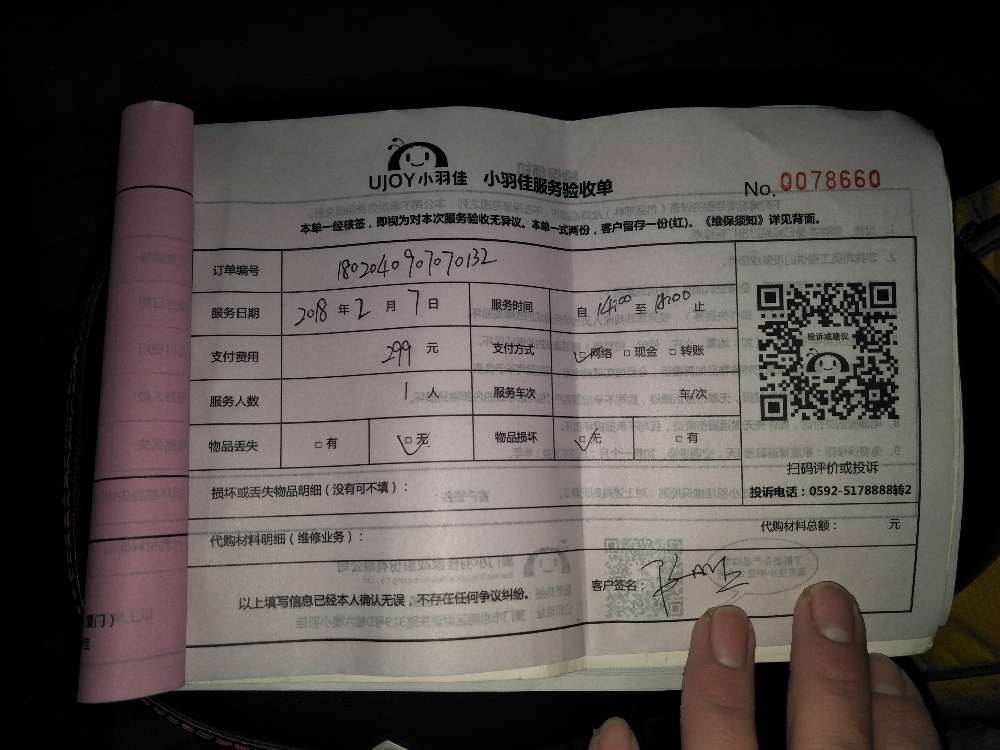 UJOY小羽佳 小羽佳服务验收单
No. 0078660
本单一经核签，即视为对本次服务验收无异议。本单一式两份，客户留存一份(红)。《维保须知》详见背面。
订单编号 180204090707070132
服务日期 2018 年 2 月 7 日 服务时间 自 14:00 至 18:00 止
支付费用 299 元 支付方式 ☑网络 □现金 □转账
服务人数 1 人 服务车次 车/次
物品丢失 □有 ☑无 物品损坏 ☑无 □有
投诉或建议
扫码评价或投诉
投诉电话：0592-5178888转2
损坏或丢失物品明细（没有可不填）：
代购材料明细（维修业务）： 代购材料总额： 元
以上填写信息已经本人确认无误，不存在任何争议纠纷。 客户签名：